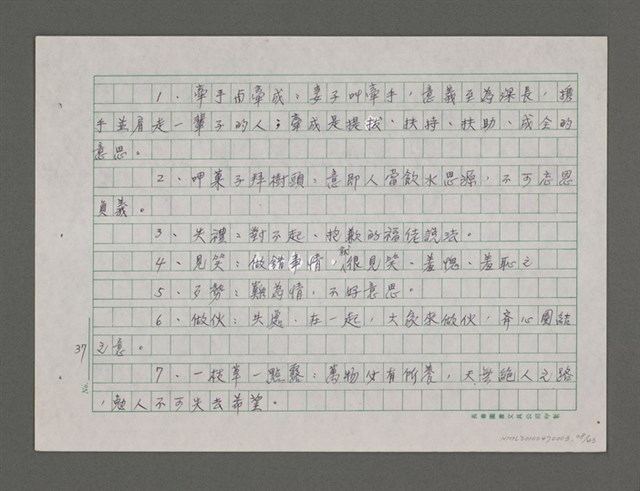 1、牽手而牽成：妻子叫牽手，意義至為深長，携
手並肩走一輩子的人；牽成是提拔、扶持、扶助、成全的
意思。
2、呷菓子拜樹頭：意即人當飲水思源，不可忘恩
負義。
3、失禮：對不起、抱歉的福佬說法。
4、見笑：做錯事情，很見笑、羞愧、羞恥之
5、歹勢：難為情，不好意思。
6、做伙：共處、在一起，大家來做伙，齊心團結
之意。
37
7、一枝草一點露：萬物必有所養，天無絕人之路
，勉人不可失去希望。
No.